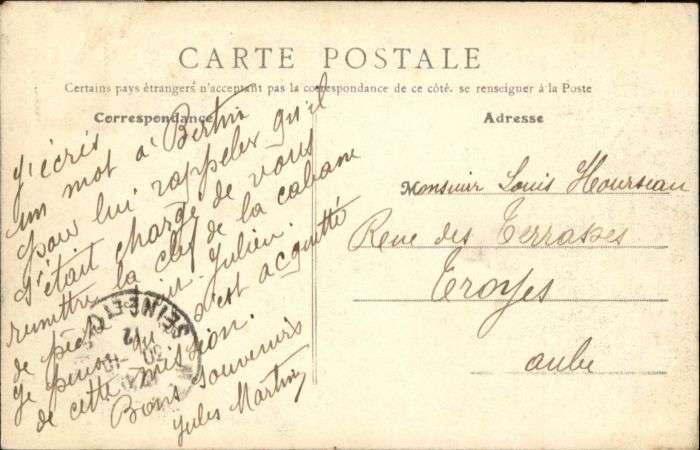 CARTE POSTALE
Certains pays étrangers n'acceptant pas la correspondance de ce côté, se renseigner à la Poste
Correspondance
Adresse
J'écris
un mot à Bertin
pour lui rappeler qu'il
s'était chargé de vous
remettre la clef de la cabane
de Julien.
Je pense qu' s'est acquitté
de cette mission.
Bons souvenirs
Jules Martin
Monsieur Louis
Rue des Terrasses
Troyes
aube
SEINE ET O
12